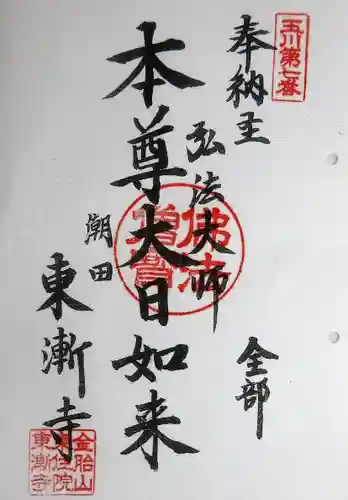 玉川第七番
奉納主
弘法大師
全部
本尊大日如来
潮田
東漸寺
佛法
僧寶
金胎山
東住院
東漸寺